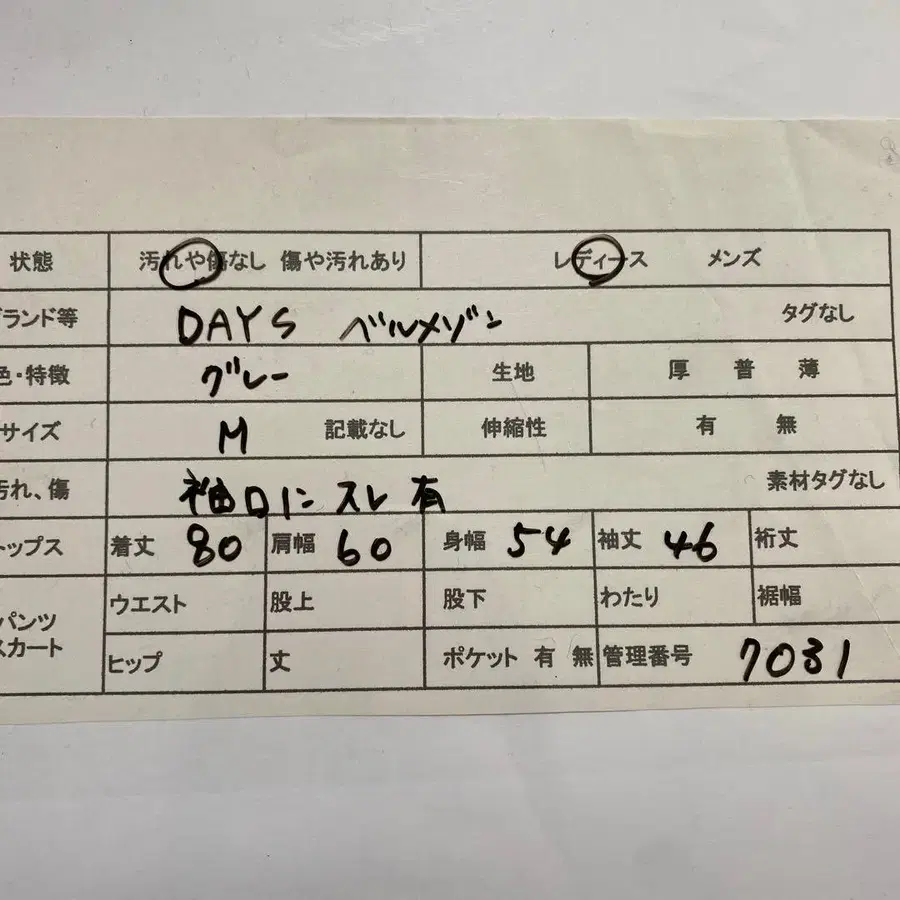 状態 汚れや傷なし 傷や汚れあり レディース メンズ
ランド等 DAYS ベルメゾン タグなし
色・特徴 グレー 生地 厚 普 薄
サイズ M 記載なし 伸縮性 有 無
汚れ、傷 袖口にスレ有 素材タグなし
トップス 着丈 80 肩幅 60 身幅 54 袖丈 46 裄丈
パンツ スカート ウエスト 股上 股下 わたり 裾幅
ヒップ 丈 ポケット 有 無 管理番号 7031